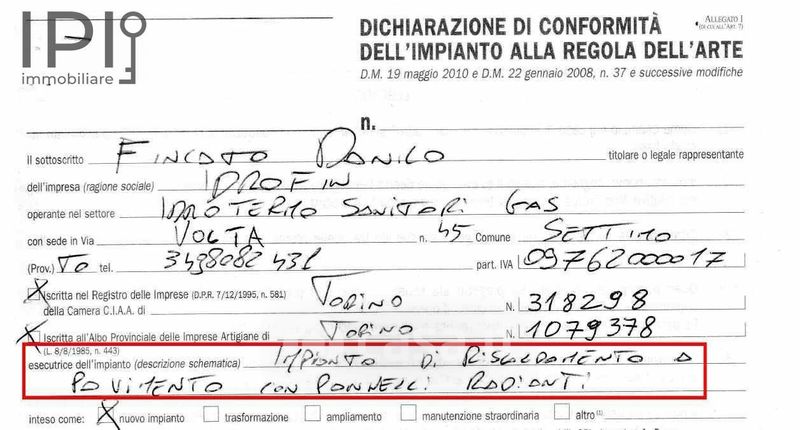 IPI
immobiliare
ALLEGATO I
(DI CUI ALL'ART. 7)
DICHIARAZIONE DI CONFORMITÀ
DELL'IMPIANTO ALLA REGOLA DELL'ARTE
D.M. 19 maggio 2010 e D.M. 22 gennaio 2008, n. 37 e successive modifiche
n.
Il sottoscritto FINCATO DANILO titolare o legale rappresentante
dell'impresa (ragione sociale) IDROFIN
operante nel settore IDROTERMO SANITARI GAS
con sede in Via VOLTA n. 45 Comune SETTIMO
(Prov.) TO tel. 3498082431 part. IVA 09762000017
Iscritta nel Registro delle Imprese (D.P.R. 7/12/1995, n. 581)
della Camera C.I.A.A. di TORINO N. 318298
Iscritta all'Albo Provinciale delle Imprese Artigiane di TORINO N. 1079378
(L. 8/8/1985, n. 443)
esecutrice dell'impianto (descrizione schematica) IMPIANTO DI RISCALDAMENTO A
PAVIMENTO CON PANNELLI RADIANTI
inteso come: nuovo impianto trasformazione ampliamento manutenzione straordinaria altro (1)